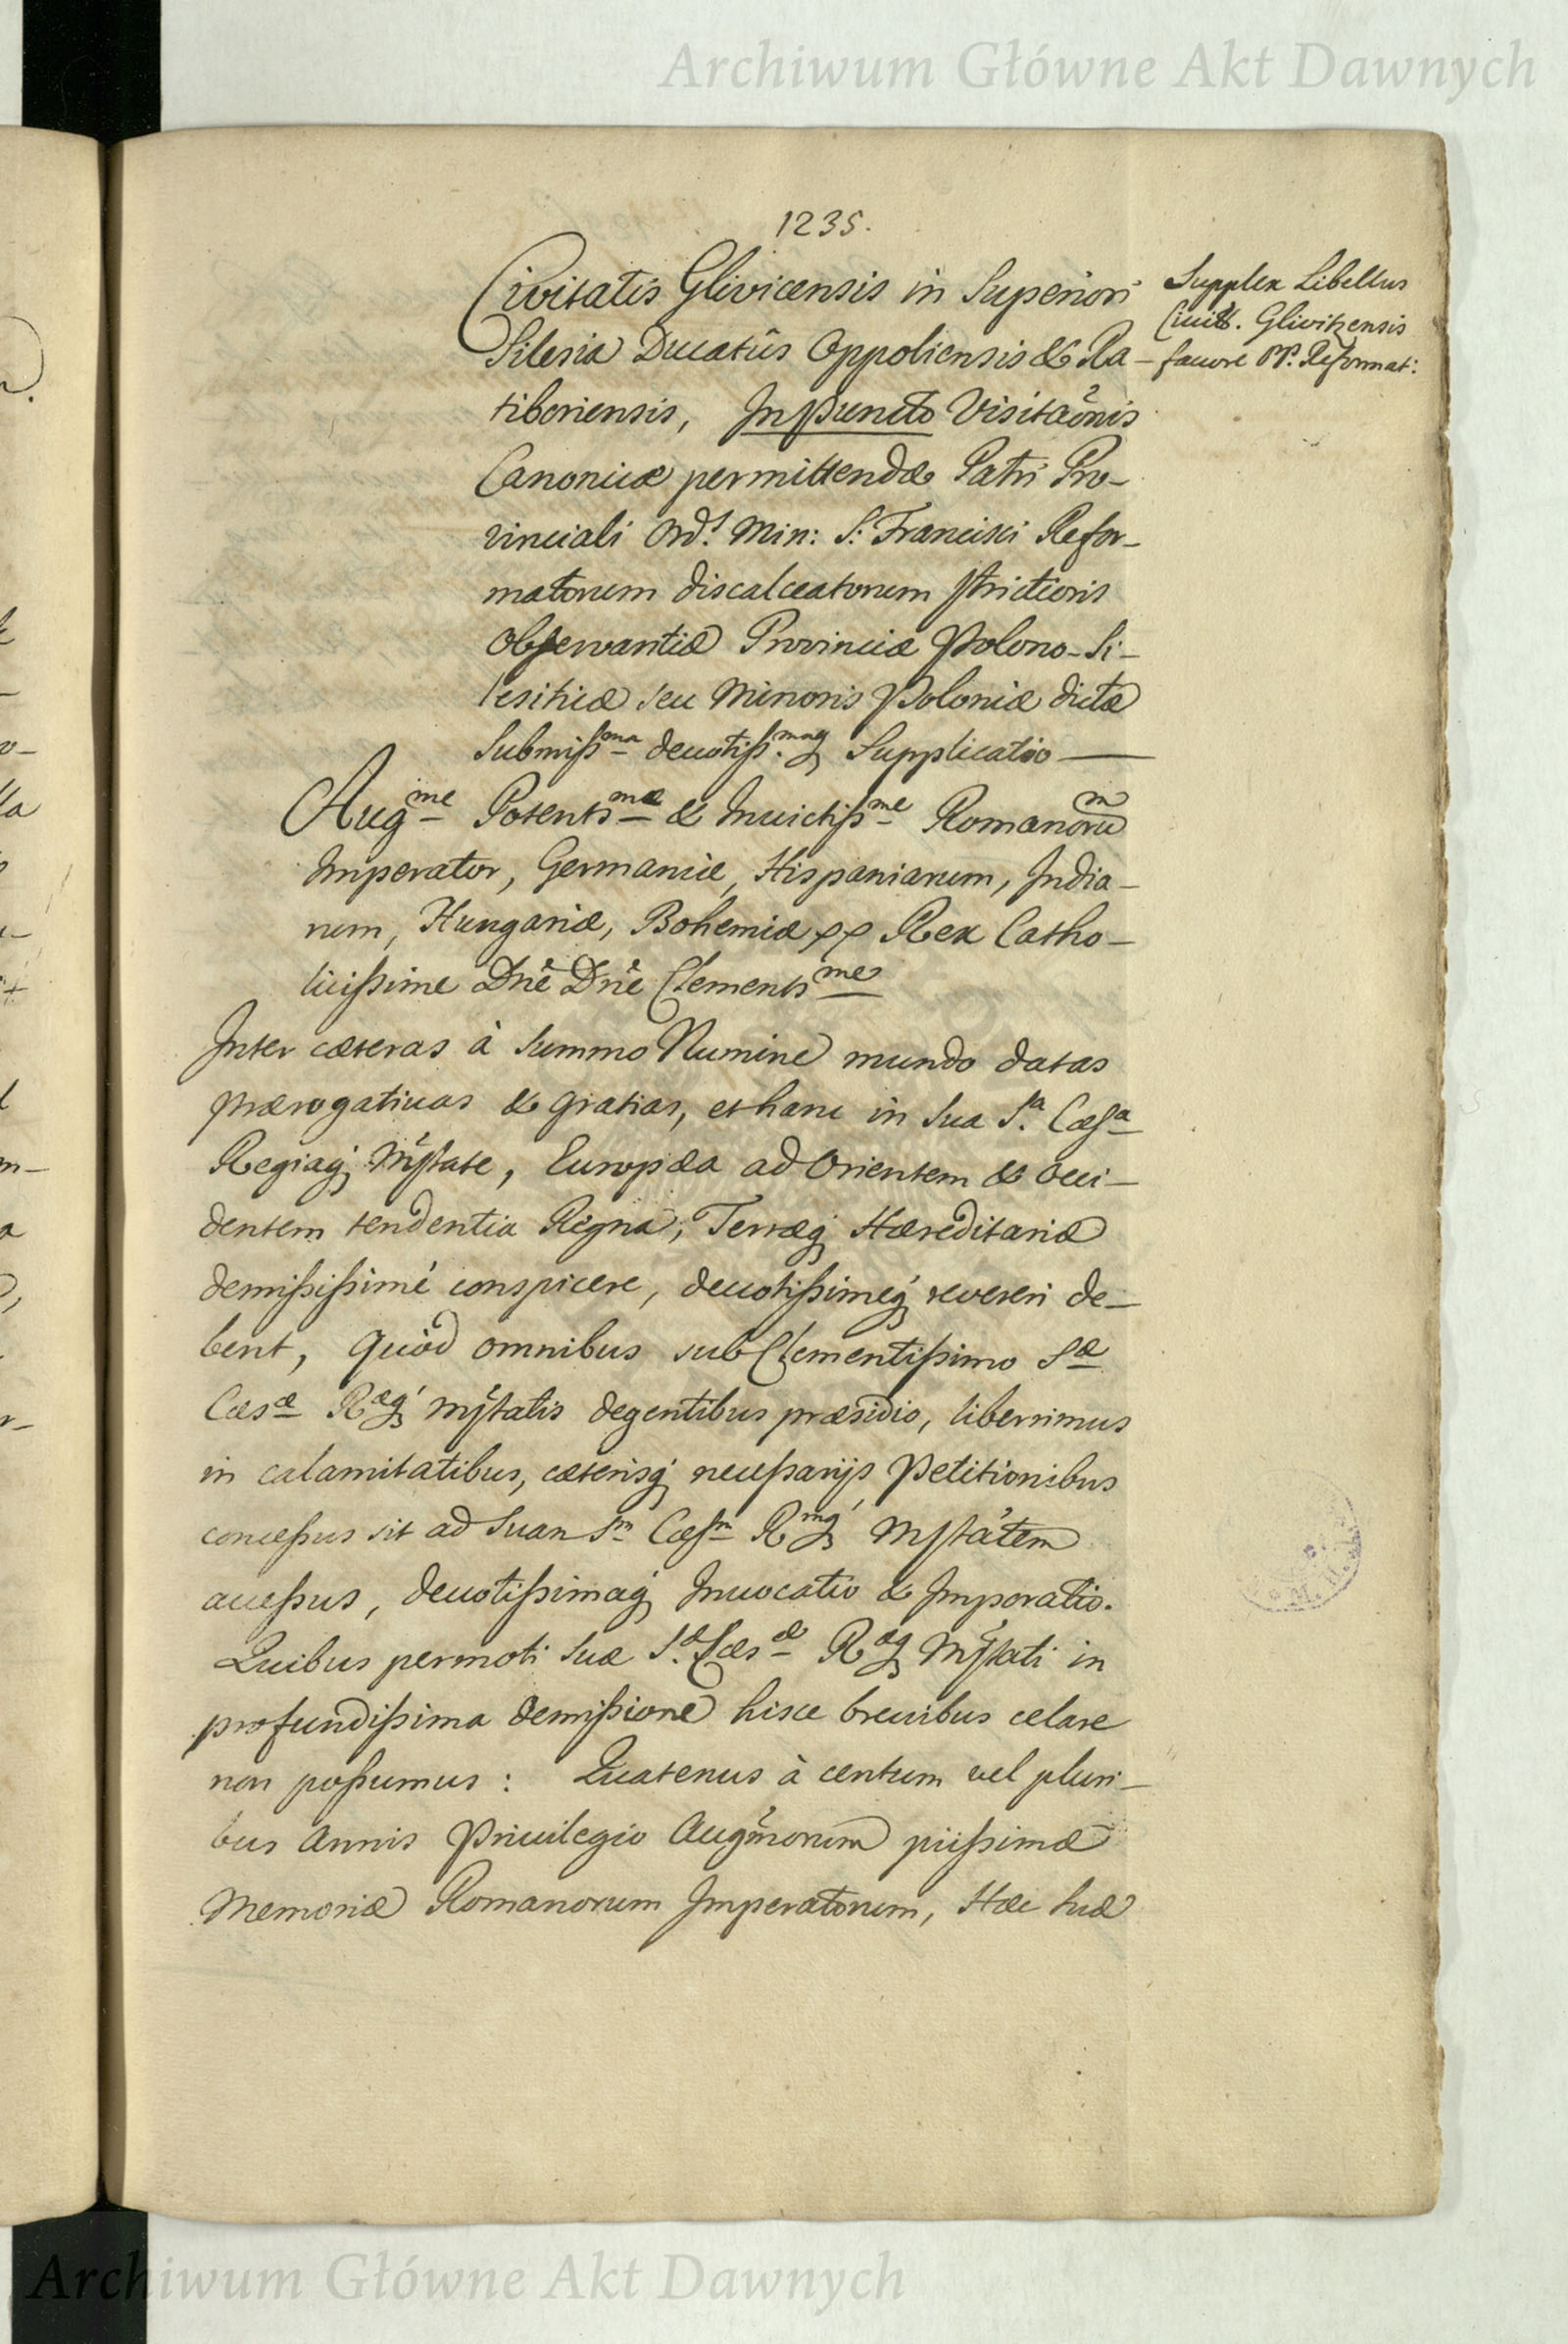 Archiwum Główne Akt Dawnych
1235.
Civitatis Glivicensis in Superiori
Silesia Ducatûs Oppoliensis & Ra-
tiboriensis, In puncto Visitaõnis
Canonicæ permittendæ Patri Pro-
vinciali Ord.s Min: S: Francisci Refor-
matorum discalceatorum strictioris
observantiæ Provinciæ Polono-Si-
lesiticæ seu Minoris Poloniæ dictæ
Submissma devotiss.maq Supplicatio
Supplex Libellus
Civitt. Glivitzensis
favore PP. Reformat:
Augme Potentsmæ & Invictissme Romanorum
Imperator, Germaniæ, Hispaniarum, India-
rum, Hungariæ, Bohemiæ pp Rex Catho-
licissime Dnẽ Dnẽ Clementsme
Inter cæteras à Summo Numine mundo datas
prærogativas & gratias, et hanc in Sua S.a Cæsa
Regiaq; Mjstate, Europæa ad Orientem & Occi-
dentem tendentia Regna, Terræq; Hæreditariæ
demississimé conspicere, devotissimeq; revereri de-
bent, quòd omnibus sub Clementissimo Sæ
Cæsæ Ræq; Mjstatis degentibus præsidio, liberrimus
in calamitatibus, cæterisq; necessarijs Petitionibus
concessus sit ad Suam Sm Cæsm Rmq; Mjstatem
accessus, devotissimaq; Invocatio & Imporatio.
Quibus permoti Suæ S.æ Cæsæ Ræq; Mjstati in
profundissima demissione hisce brevibus celare
non possumus: Quatenus à centum vel pluri-
bus Annis Privilegio Augmorum piissimæ
Memoriæ Romanorum Imperatorum, Hæc suæ
Archiwum Główne Akt Dawnych